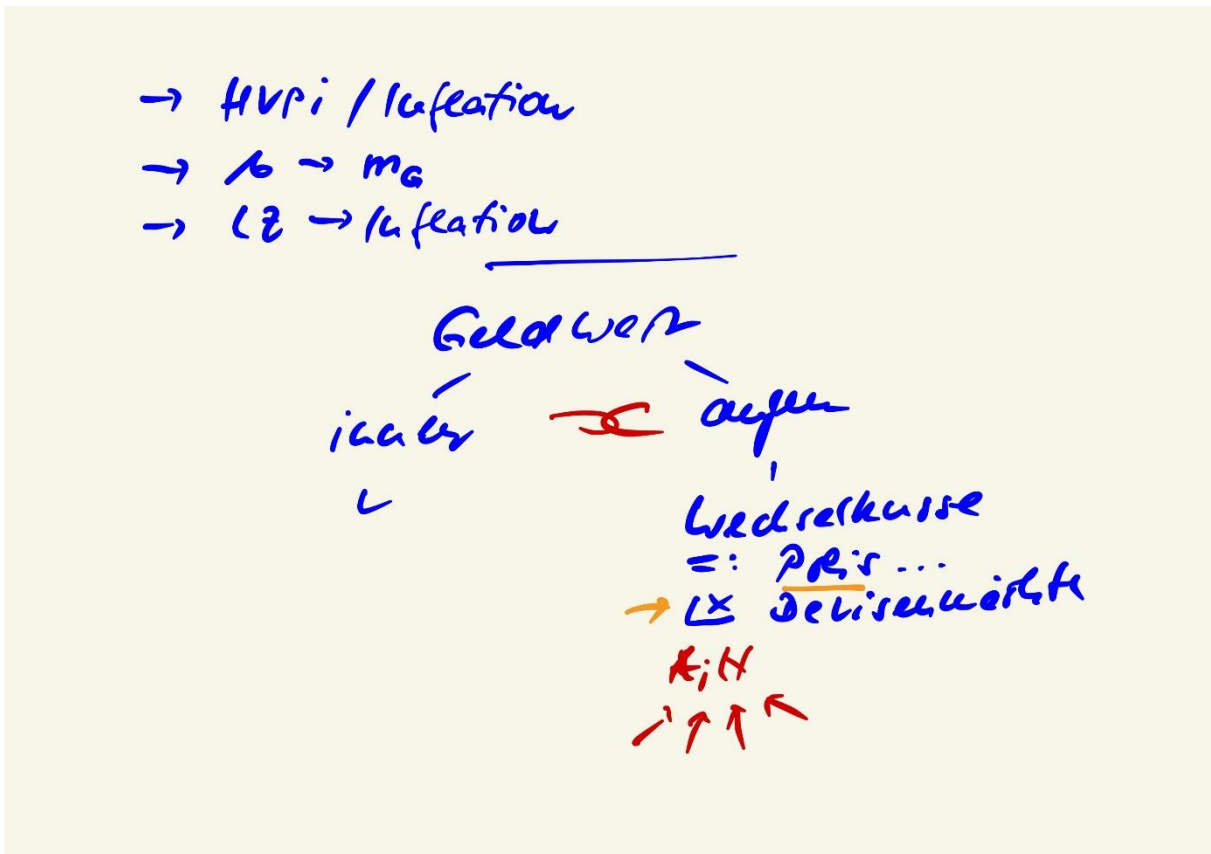 → HVPi / Inflation
→ → mG
→ LZ → Inflation
Geldwert
innen außen
Wechselkurse
=: Preis ...
→ Devisenmärkte